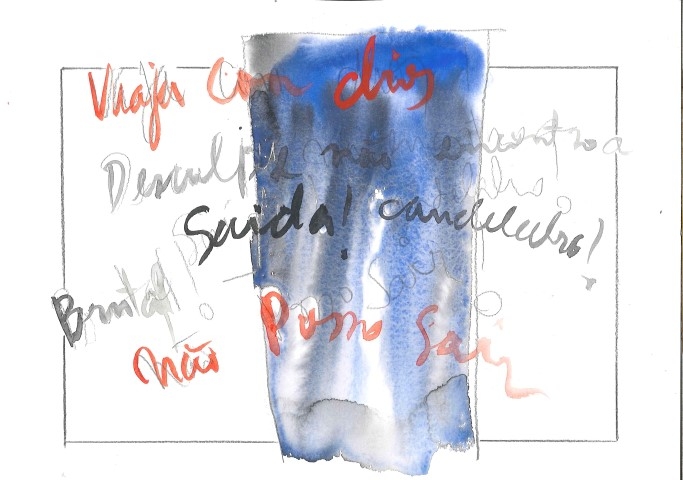 Viaja con dios
Desculpe não encontro a
Saida! candelabro!
Brutal!
não Posso Sair